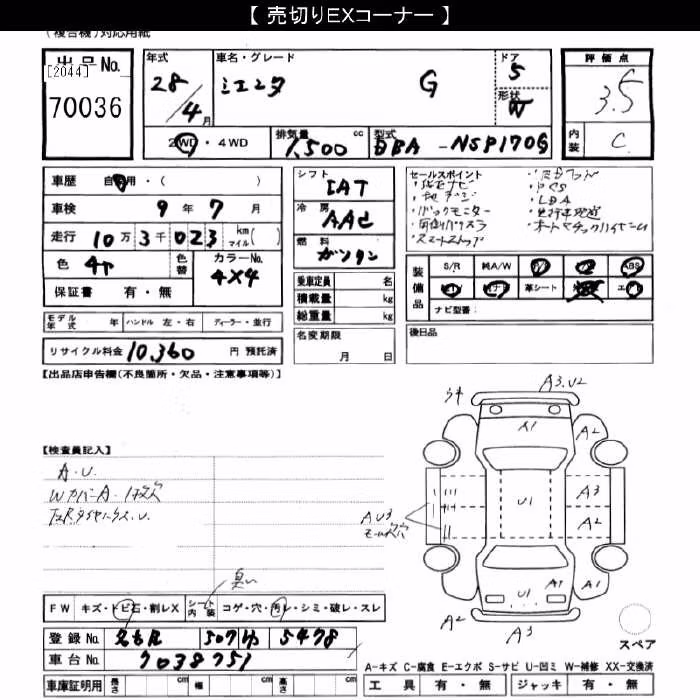 【 売切りEXコーナー 】
(複合機)対応用紙
出品No.
[2044]
70036
年式
28/4月
車名・グレード
シエンタ G
ドア
5
形状
W
評価点
3.5
内装
C
2WD・4WD
排気量
1,500 cc
型式
DBA-NSP170G
車歴 自家用・( )
車検 9年 7月
走行 10万3千023 km マイル( )
色
色替
カラーNo.
4X4
保証書 有・無
モデル年式 年 ハンドル 左・右 ディーラー・並行
リサイクル料金 10,360 円 預託済
シフト
IAT
冷房
AAC
燃料
ガソリン
乗車定員 名
積載量 kg
総重量 kg
名変期限
月 日
セールスポイント
・バックモニター
・スマートストップ
・LDA
・オートマチックハイビーム
装備品
S/R
純A/W
ABS
革シート
ナビ型番:
後日品
【出品店申告欄(不良箇所・欠品・注意事項等)】
【検査員記入】
A.U.
WカバーA.1枚欠
A3.U2
A1
A2
U1
A3
A2
A U3
モール穴
A1
A1
U1
A2
A3
スペア
臭い
FW キズ・トビ石・割レX シート内装 コゲ・穴・汚レ・シミ・破レ・スレ
登録No. 名古屋 507 5478
車台No. 7038751
車庫証明用 長さ cm 幅 cm 高さ cm
A-キズ C-腐食 E-エクボ S-サビ U-凹ミ W-補修 XX-交換済
工具 有・無 ジャッキ 有・無